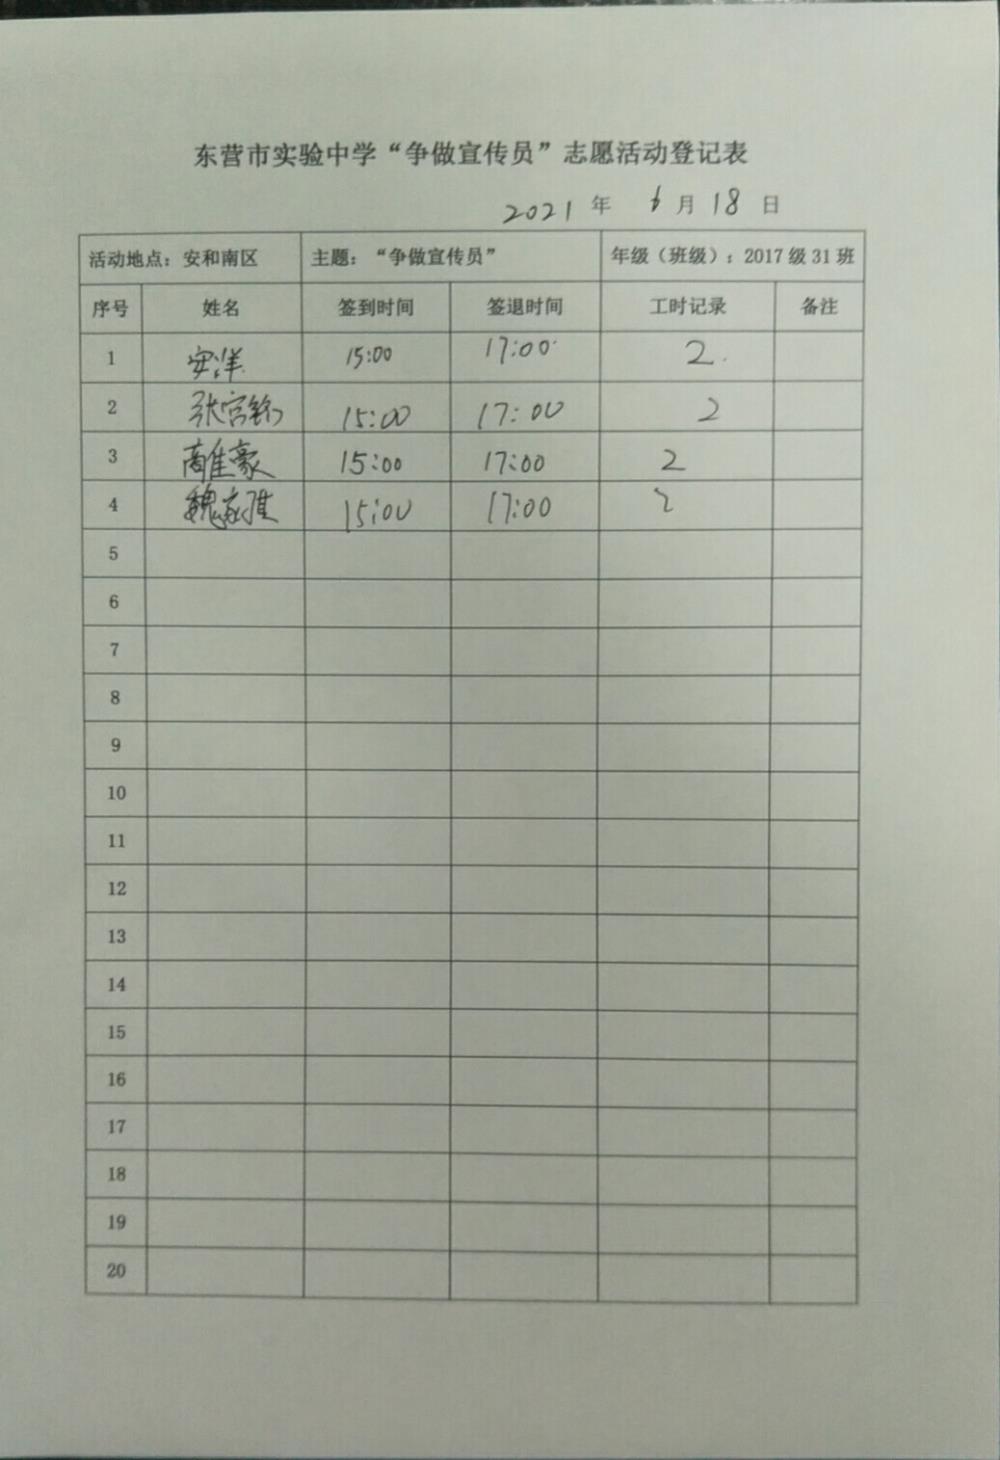 东营市实验中学“争做宣传员”志愿活动登记表
2021 年 6 月 18 日
活动地点：安和南区 主题：“争做宣传员” 年级（班级）：2017 级 31 班
序号 姓名 签到时间 签退时间 工时记录 备注
1 安洋 15:00 17:00 2
2 张宫铭 15:00 17:00 2
3 15:00 17:00 2
4 魏家雅 15:00 17:00 2
5
6
7
8
9
10
11
12
13
14
15
16
17
18
19
20